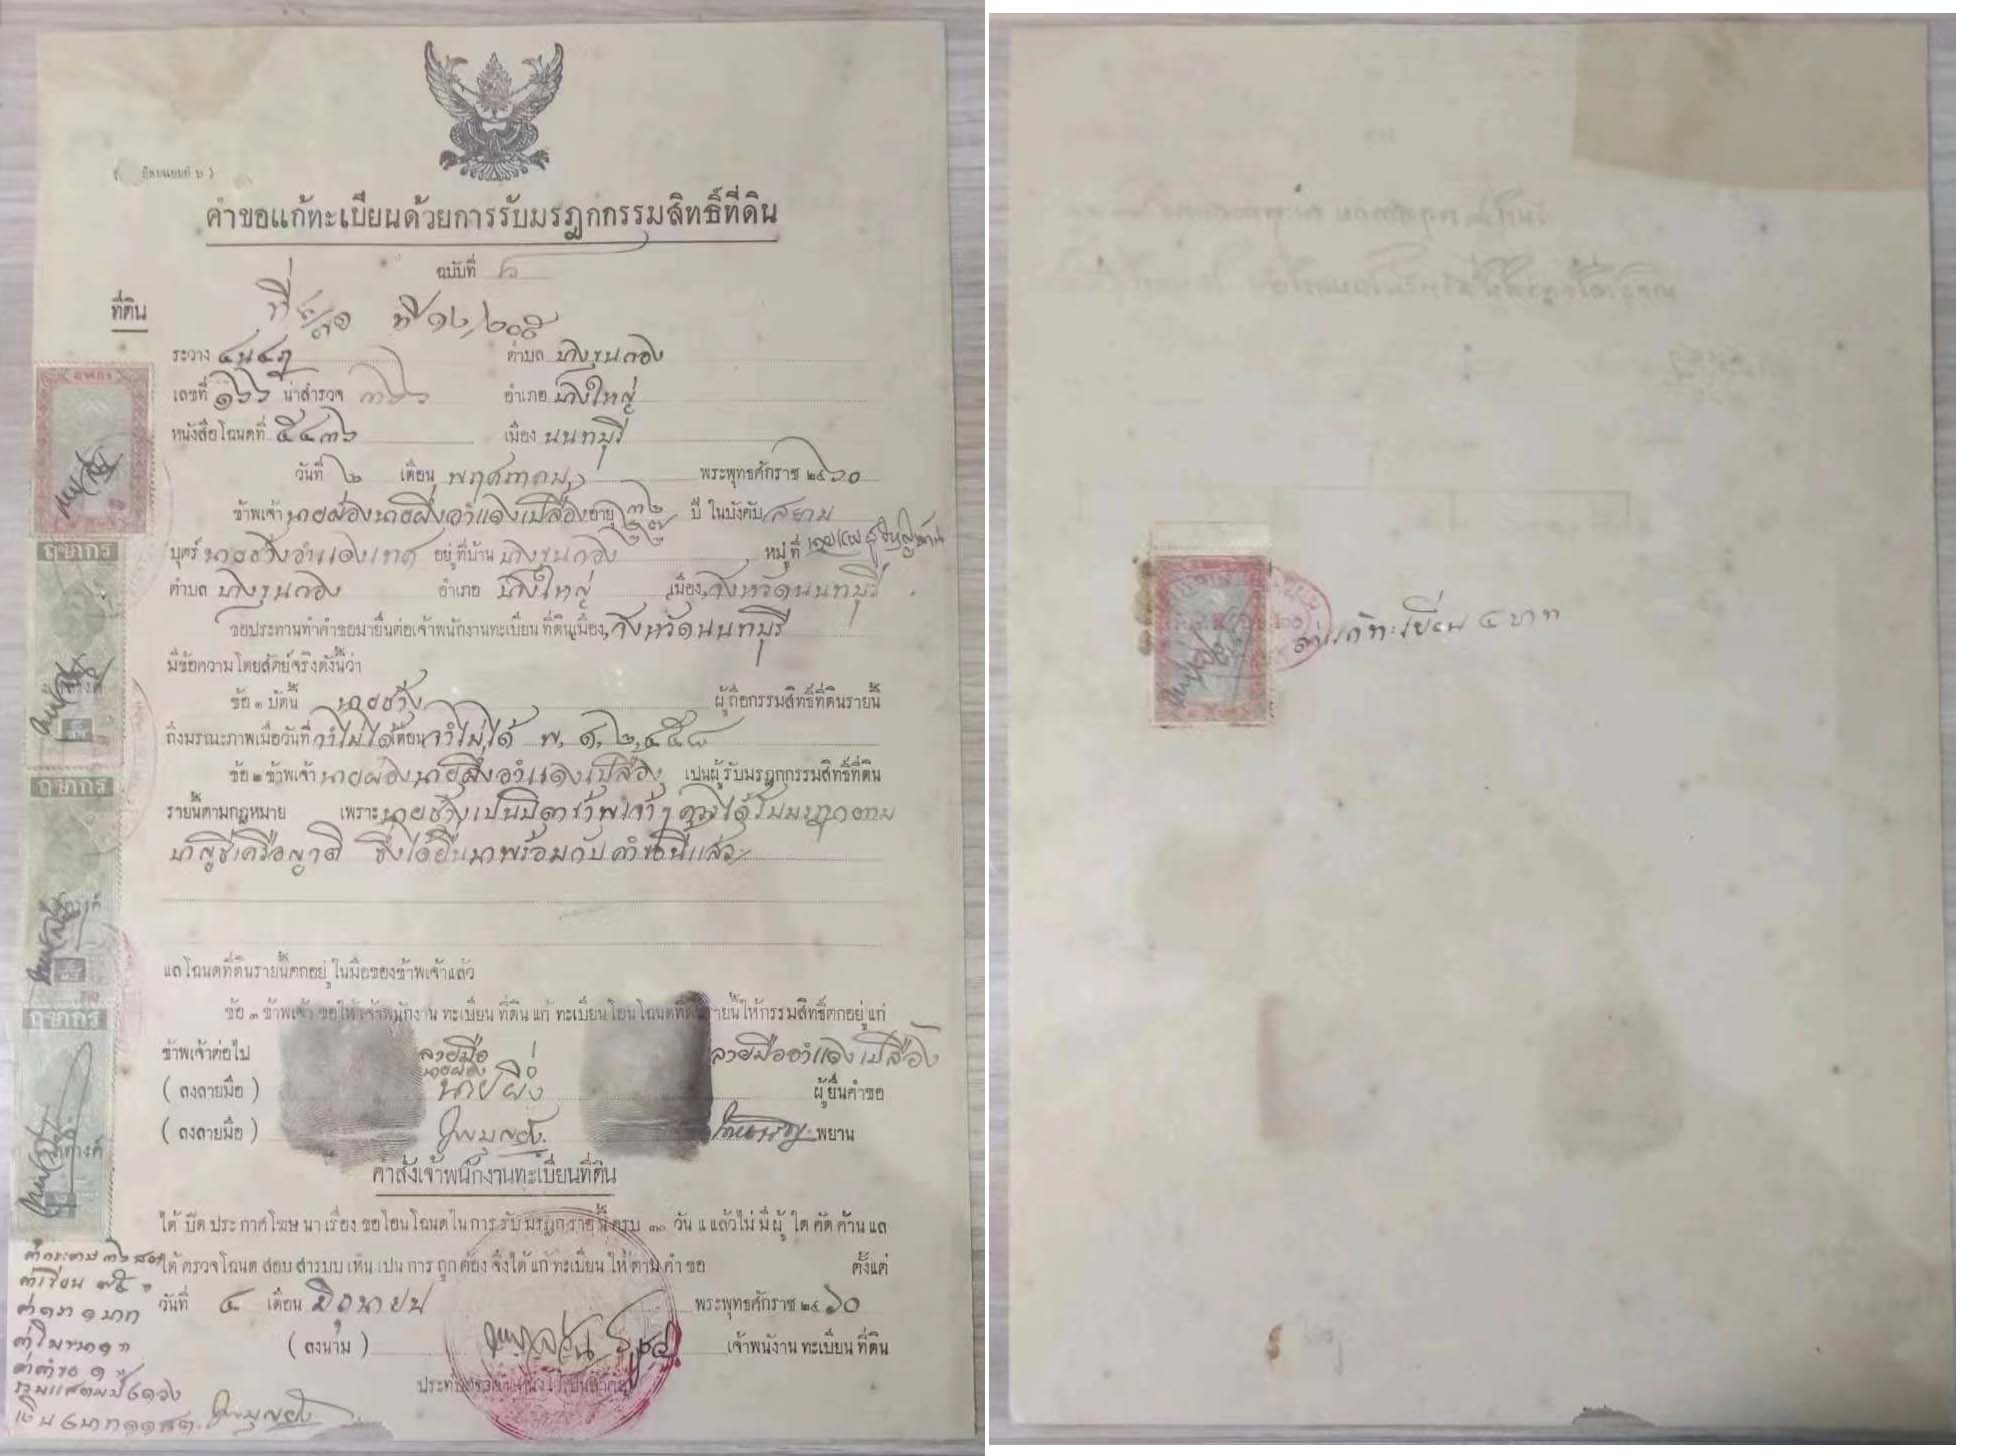 คำขอแก้ทะเบียนด้วยการรับมรฎกกรรมสิทธิ์ที่ดิน
ฉบับที่
ที่ดิน
ระวาง ตำบล บางขุนกอง
เลขที่ ๑๖๖ น่าสำรวจ ๓๖๖ อำเภอ บางใหญ่
หนังสือโฉนดที่ ๕๔๓๖ เมือง นนทบุรี
วันที่ ๒ เดือน พฤศภาคม พระพุทธศักราช ๒๔๖๐
ข้าพเจ้า นายผ่องนายผึ่งอำแดงเปลื้อง อายุ ๓๒ ปี ในบังคับ สยาม
บุตร์ นายช้างอำแดงเทศ อยู่ที่บ้าน บางขุนกอง หมู่ที่
ตำบล บางขุนกอง อำเภอ บางใหญ่ เมือง จังหวัดนนทบุรี
ขอประทานทำคำขอมายื่นต่อเจ้าพนักงานทะเบียน ที่ดินเมือง จังหวัดนนทบุรี
มีข้อความโดยสัตย์จริงดังนี้ว่า
ข้อ ๑ บัดนี้ นายช้าง ผู้ถือกรรมสิทธิ์ที่ดินรายนี้
ถึงมรณะภาพเมื่อวันที่ จำไม่ได้ เดือน จำไม่ได้ พ.ศ. ๒๔๕๘
ข้อ ๒ ข้าพเจ้า นายผ่องนายผึ่งอำแดงเปลื้อง เปนผู้รับมรฎกกรรมสิทธิ์ที่ดิน
รายนี้ตามกฎหมาย เพราะ นายช้างเปนบิดาข้าพเจ้าๆ ควรได้รับมรฎกตาม
บาญชีเครือญาติ ซึ่งได้ยื่นมาพร้อมกับคำขอนี้แล้ว
แลโฉนดที่ดินรายนี้ตกอยู่ ในมือของข้าพเจ้าแล้ว
ข้อ ๓ ข้าพเจ้า ขอให้เจ้าพนักงาน ทะเบียน ที่ดิน แก้ ทะเบียนโอนโฉนดที่ดินรายนี้ให้กรรมสิทธิ์ตกอยู่แก่
ข้าพเจ้าต่อไป ลายมือ นายผ่อง ลายมืออำแดงเปลื้อง
( ลงลายมือ ) นายผึ่ง ผู้ยื่นคำขอ
( ลงลายมือ ) พยาน
คำสั่งเจ้าพนักงานทะเบียนที่ดิน
ได้ ปิด ประกาศโฆษนา เรื่อง ขอโอนโฉนดในการ รับ มรฎก รายนี้ ครบ ๓๐ วัน แล้วไม่ มีผู้ ใด คัด ค้าน แล
ได้ ตรวจโฉนด สอบ สารบบ เห็น เปน การ ถูก ต้อง จึงได้ แก้ ทะเบียน ให้ ตาม คำ ขอ ตั้งแต่
วันที่ ๔ เดือน มิถุนายน พระพุทธศักราช ๒๔๖๐
( ลงนาม ) เจ้าพนักงาน ทะเบียน ที่ดิน
อากร
ฤชากร
ฤชากร
ฤชากร
ค่าแก้ทะเบียน ๔ บาท